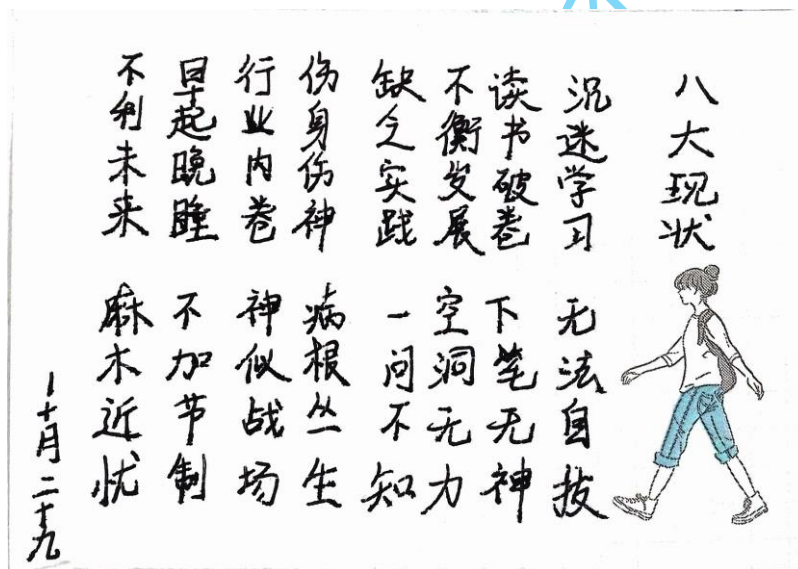 八大现状
沉迷学习 无法自拔
读书破卷 下笔无神
不衡发展 空洞无力
缺乏实践 一问不知
伤身伤神 病根丛生
行业内卷 神似战场
早起晚睡 不加节制
不利未来 麻木近忧
一十月二十九